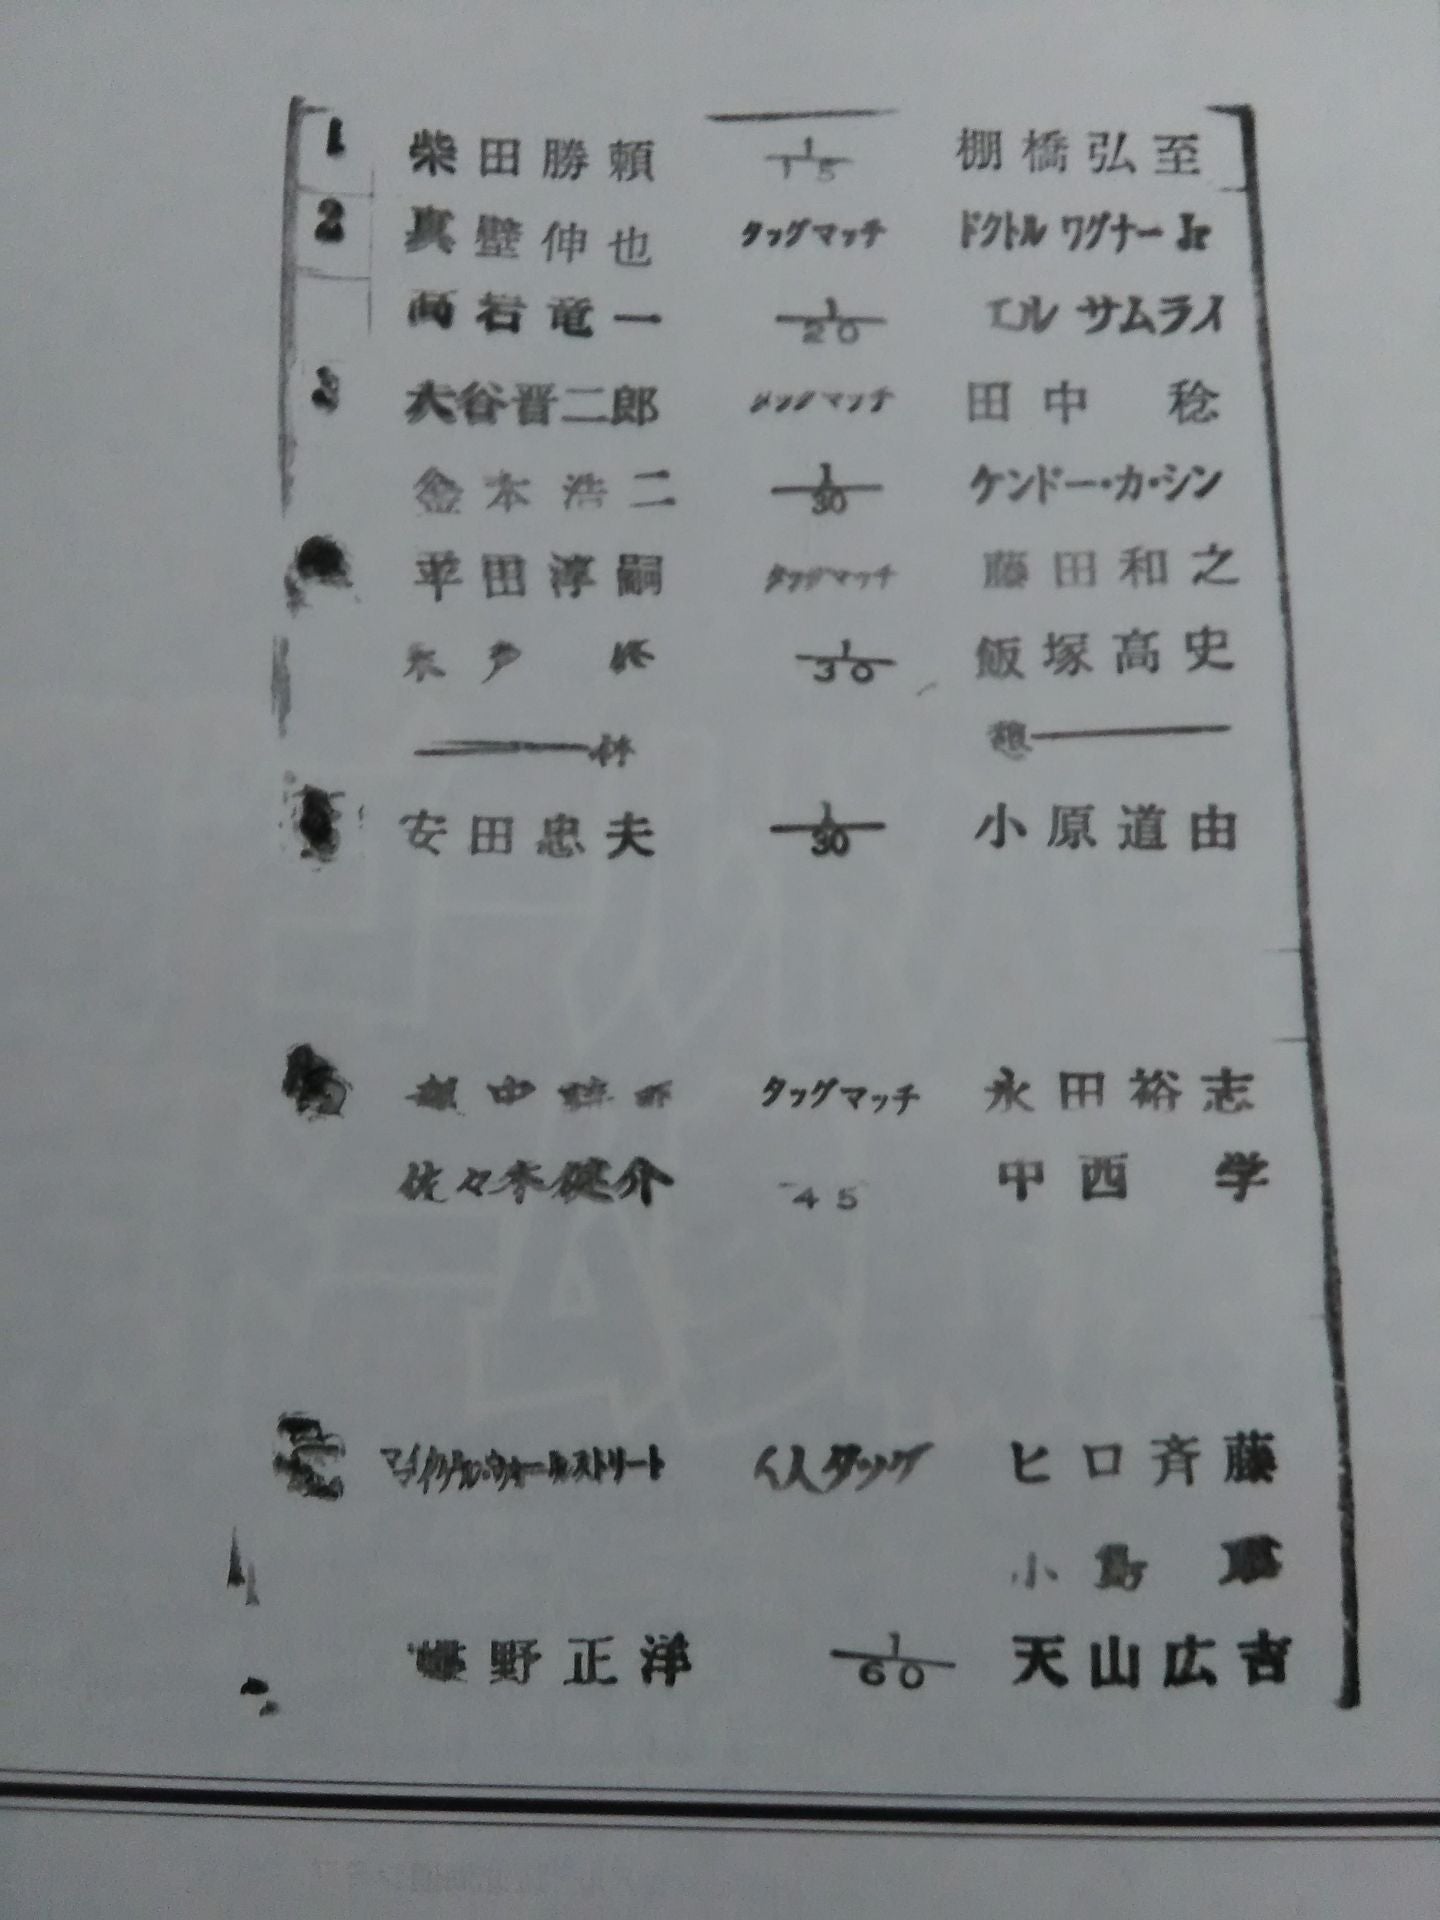 1 柴田勝頼 1/15 棚橋弘至
2 真壁伸也 タッグマッチ ドクトル ワグナー Jr
岩竜一 1/20 エル サムライ
3 大谷晋二郎 タッグマッチ 田中 稔
金本浩二 1/30 ケンドー・カ・シン
平田淳嗣 タッグマッチ 藤田和之
1/30 飯塚高史
休 憩
安田忠夫 1/30 小原道由
越中 タッグマッチ 永田裕志
佐々木健介 45 中西 学
マイケル・ウォールストリート タッグ ヒロ斉藤
小島 聡
蝶野正洋 1/60 天山広吉